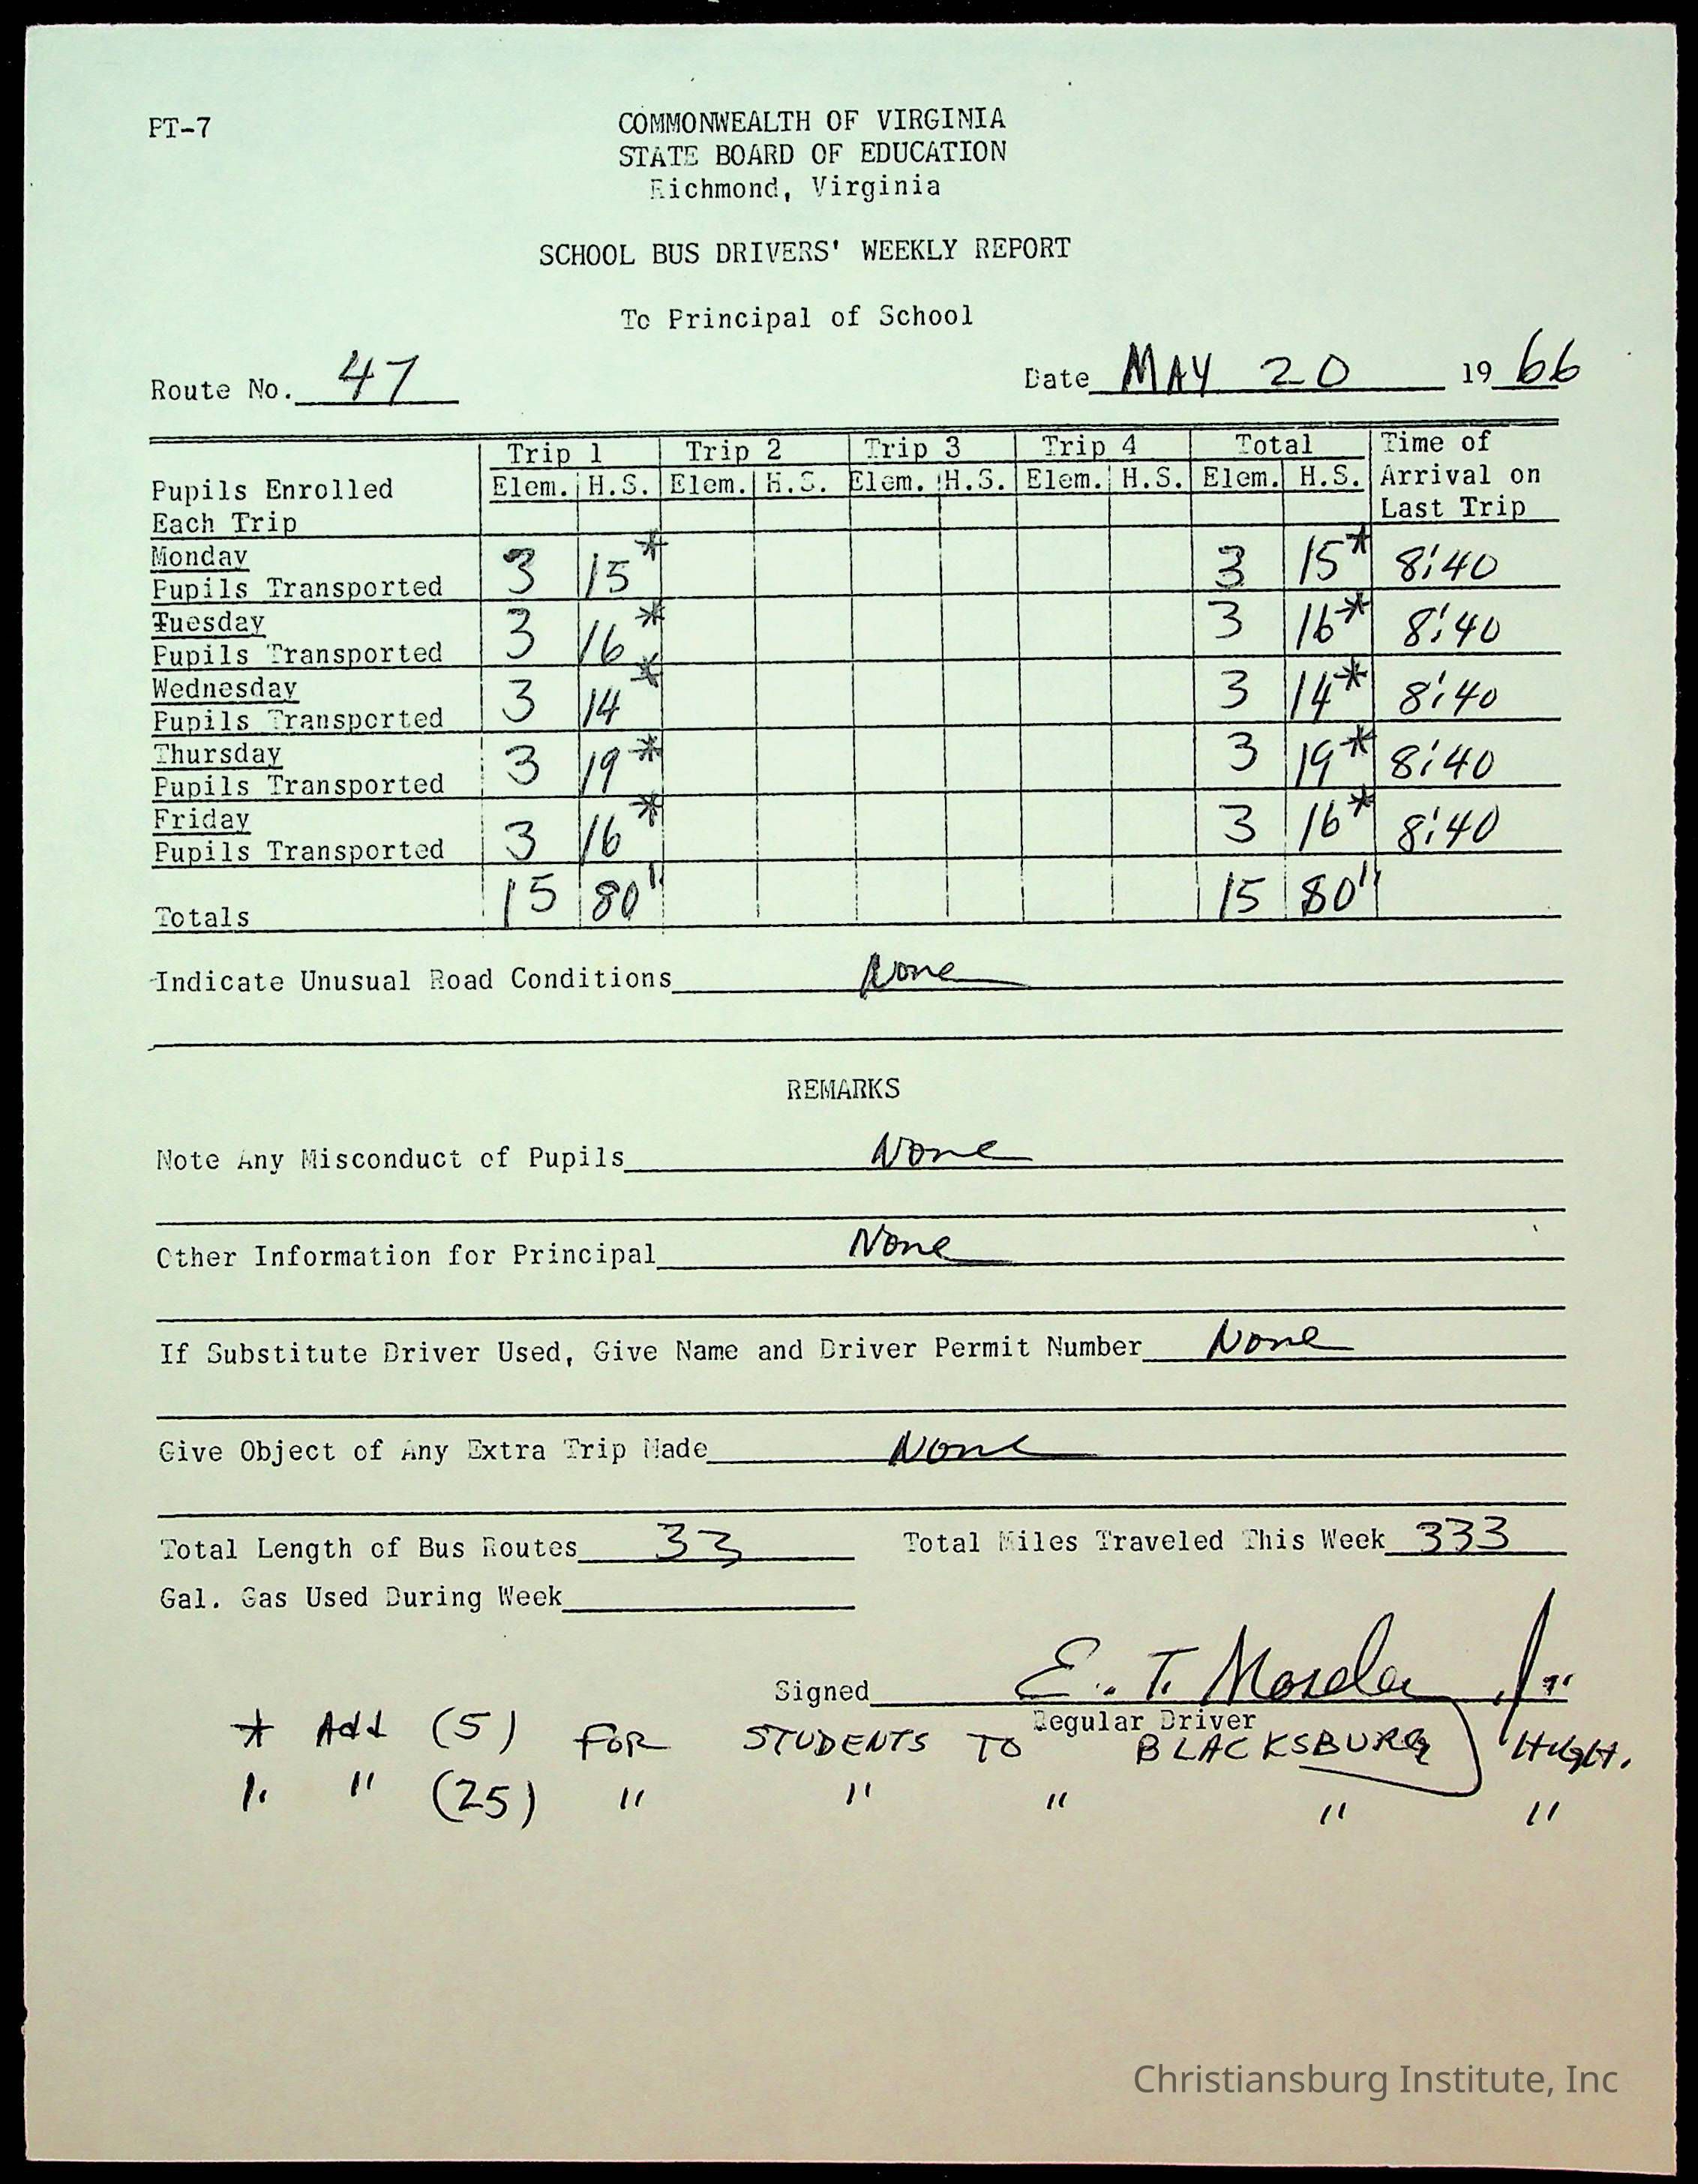 PT-7
COMMONWEALTH OF VIRGINIA
STATE BOARD OF EDUCATION
Richmond, Virginia
SCHOOL BUS DRIVERS' WEEKLY REPORT
To Principal of School
Route No. 47 Date MAY 20 1966
Trip 1 Trip 2 Trip 3 Trip 4 Total Time of
Pupils Enrolled Elem. H.S. Elem. H.S. Elem. H.S. Elem. H.S. Elem. H.S. Arrival on
Each Trip Last Trip
Monday
Pupils Transported 3 15* 3 15* 8:40
Tuesday
Pupils Transported 3 16* 3 16* 8:40
Wednesday
Pupils Transported 3 14* 3 14* 8:40
Thursday
Pupils Transported 3 19* 3 19* 8:40
Friday
Pupils Transported 3 16* 3 16* 8:40
Totals 15 80" 15 80"
Indicate Unusual Road Conditions None
REMARKS
Note Any Misconduct of Pupils None
Other Information for Principal None
If Substitute Driver Used, Give Name and Driver Permit Number None
Give Object of Any Extra Trip Made None
Total Length of Bus Routes 33 Total Miles Traveled This Week 333
Gal. Gas Used During Week
Signed E. T. Jr.
Regular Driver
* Add (5) FOR STUDENTS TO BLACKSBURG
" " (25) " " " " "
Christiansburg Institute, Inc